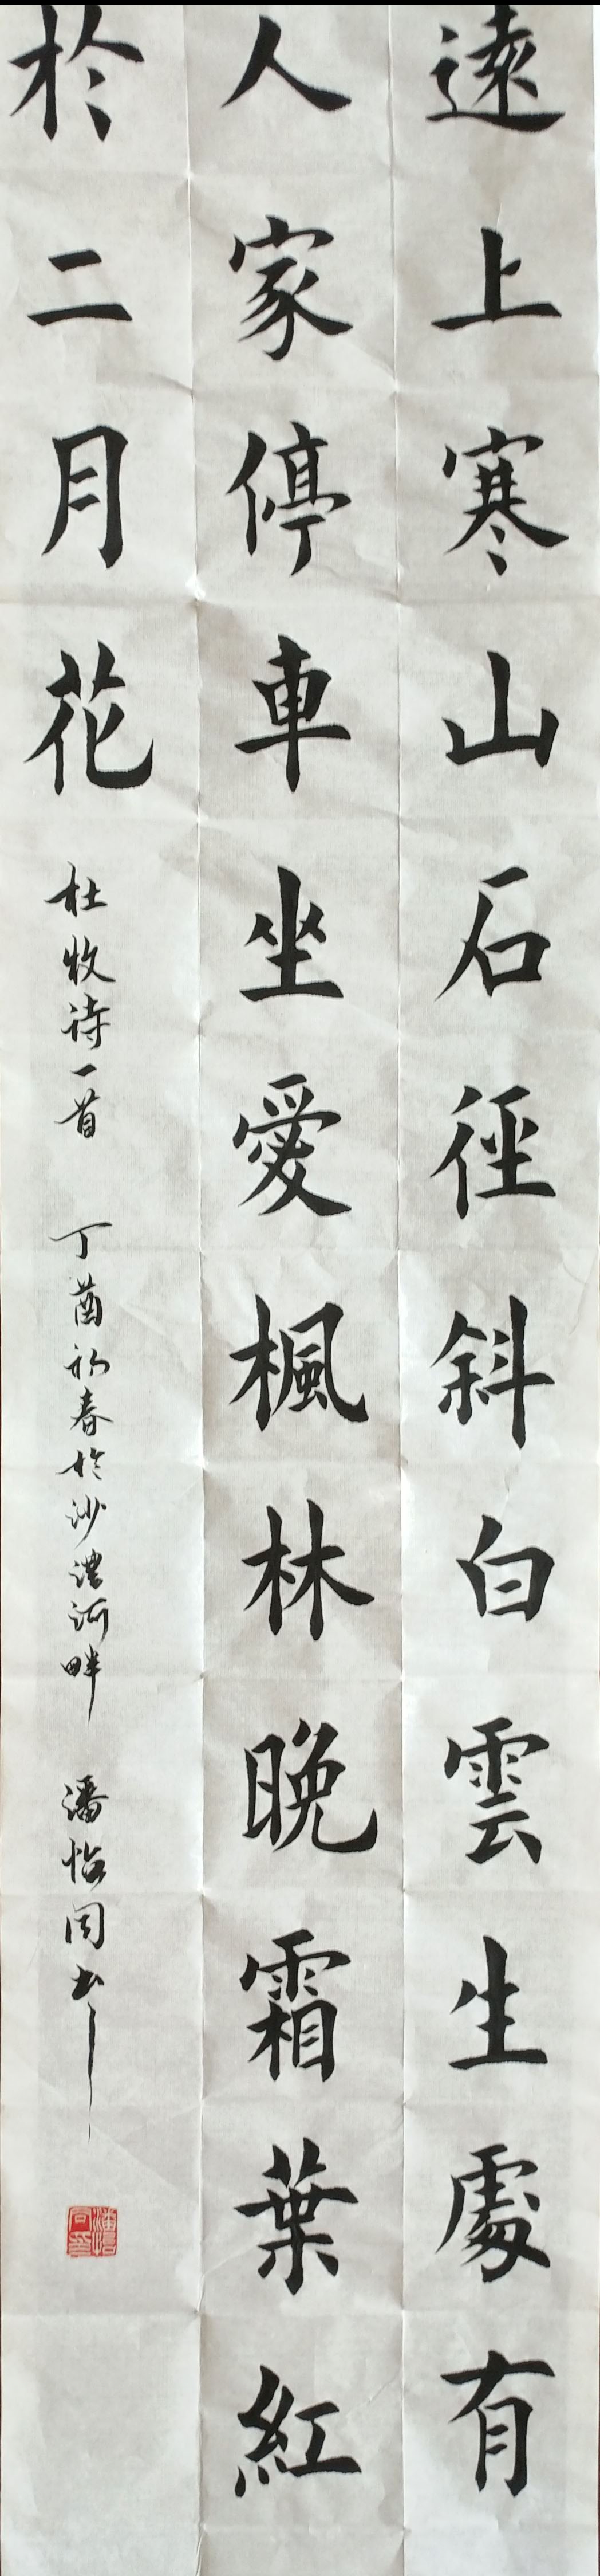 遠上寒山石徑斜白雲生處有
人家停車坐愛楓林晚霜葉紅
於二月花
杜牧诗一首 丁酉初春於沙澧河畔 潘怡同书
潘怡同印